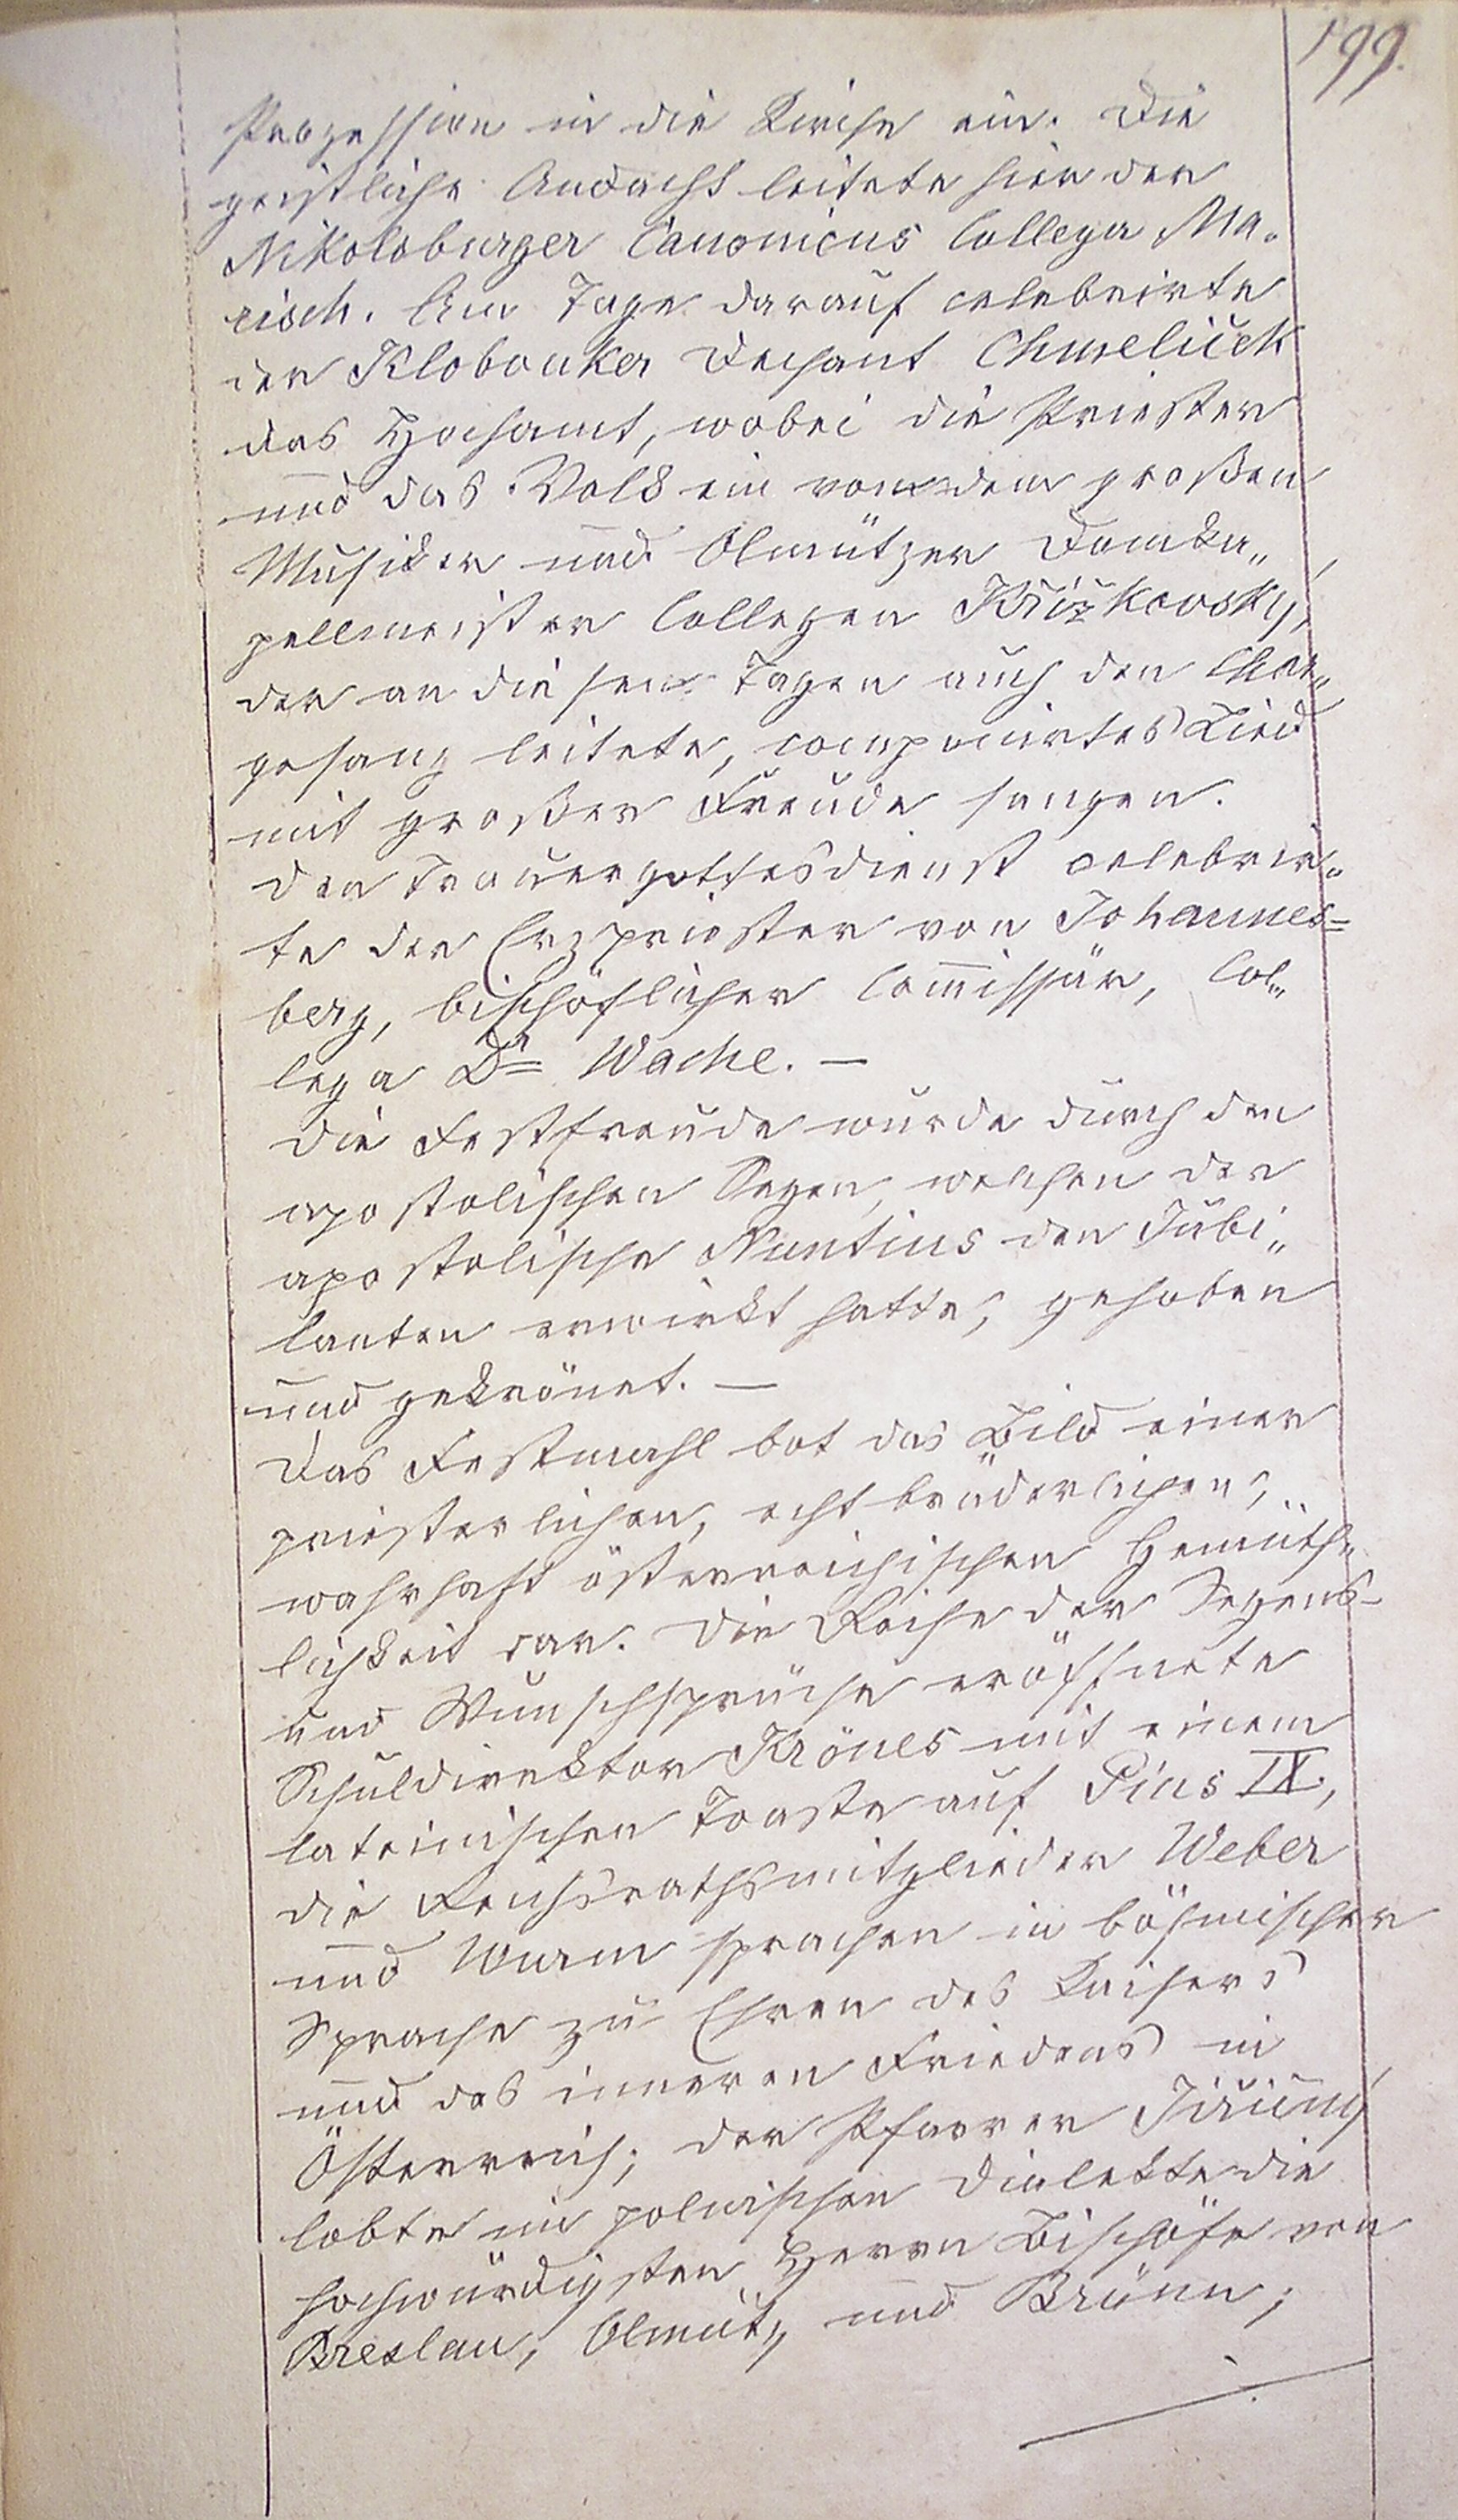 199.
Prozession in die Kirche ein. Die
geistliche Andacht leitete hier der
Nikolsburger Canonicus Collega Ma„
risch. Am Tage darauf celebrirte
der Klobouker Dechant Chmeliček
das Hochamt, wobei die Priester
und das Volk ein von dem großen
Musiker und Olmützer Domka„
pellmeister Collegen Křižkovský,
der an diesen Tagen auch den Chor„
gesang leitete, componirtes Lied
mit großer Freude sangen.
Den Trauergottesdienst celebrir„
te der Erzpriester von Johannes=
berg, bischöflicher Commissär, Col„
lega Dr Wache. —
Die Festfreude wurde durch den
apostolischen Segen, welchen der
apostolische Nuntius den Jubi„
lanten erwirkt hatte, gehoben
und gekrönet. —
Das Festmahl bot das Bild einer
priesterlichen, echt brüderlichen,
wahrhaft österreichischen Gemüth„
lichkeit dar. Die Reihe der Segens-
und Wunschsprüche eröffnete
Schuldirektor Krönes mit einem
lateinischen Toaste auf Pius IX.,
die Reichsrathsmitglieder Weber
und Wurm sprachen in böhmischer
Sprache zu Ehren des Kaisers
und des inneren Friedens in
Österreich; der Pfarrer
lobte im polnischen Dialekte die
hochwürdigsten Herrn Bischöfe von
Breslau, Olmütz und Brünn;